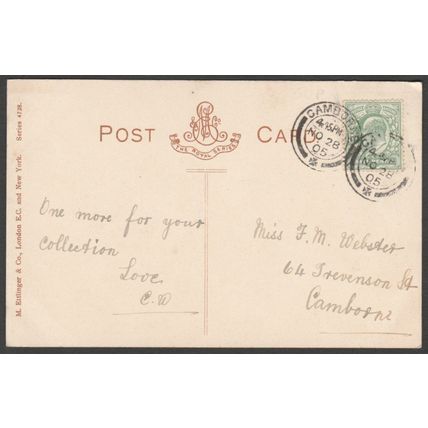 POST CARD
THE ROYAL SERIES
M. Ettlinger & Co., London E.C. and New York. Series 4728.
CAMBORNE
4.15PM
NO 28
05
NO 28
05
One more for your
collection
Love
C.W
Miss F. M. Webster
64 Trevenson St
Camborne